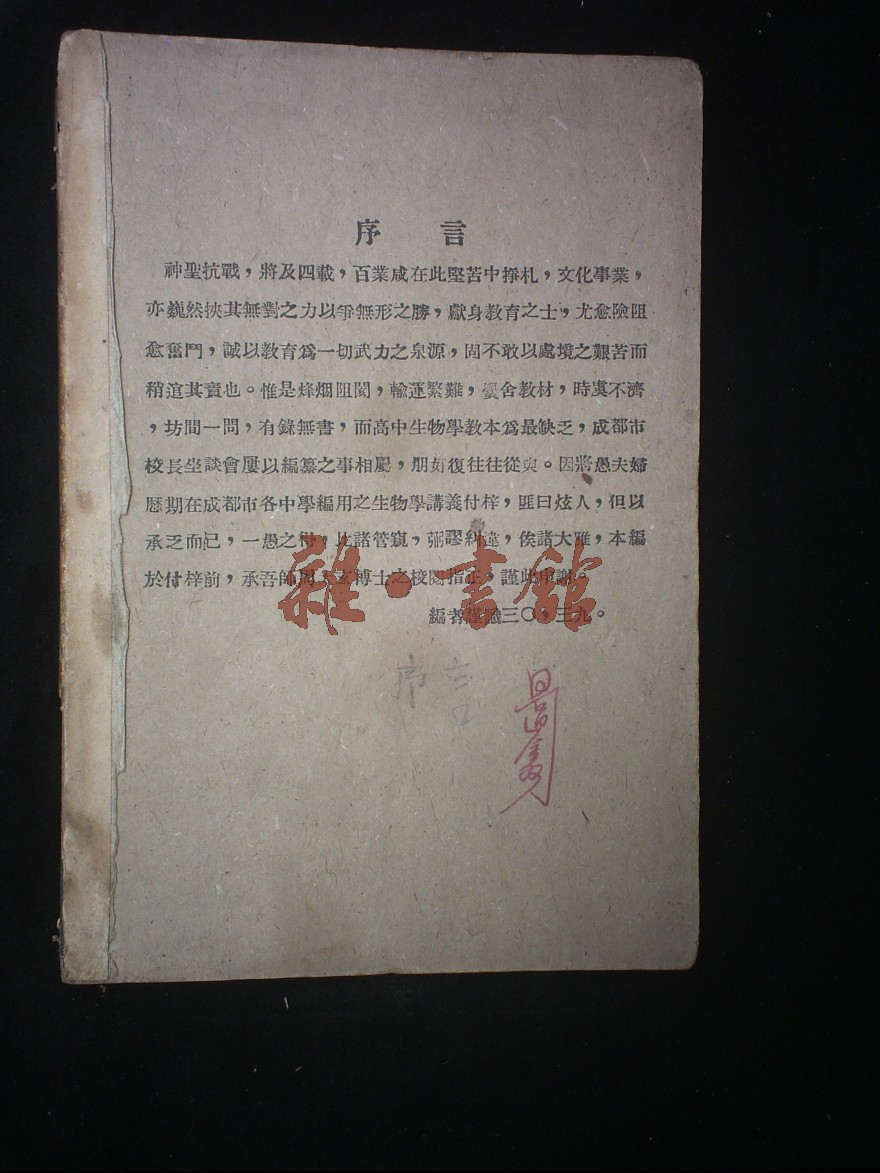 序 言
神聖抗戰，將及四載，百業咸在此堅苦中掙札，文化事業，
亦巍然挾其無對之力以爭無形之勝，獻身教育之士，尤愈險阻
愈奮鬥，誠以教育爲一切武力之泉源，固不敢以處境之艱苦而
稍渲其責也。惟是烽烟阻閡，輸運繁難，黌舍教材，時虞不濟
，坊間一問，有錄無書，而高中生物學教本爲最缺乏，成都市
校長坐談會屢以編纂之事相屬，朋好復往往從臾。因將愚夫婦
歷期在成都市各中學編用之生物學講義付梓，匪曰炫人，但以
承乏而已，一愚之得，比諸管窺，弼謬糾違，俟諸大雅，本編
於付梓前，承吾師周 玄博士之校閱指正，謹此申謝。
編者謹識三〇，三九。
雜·書館
序 言